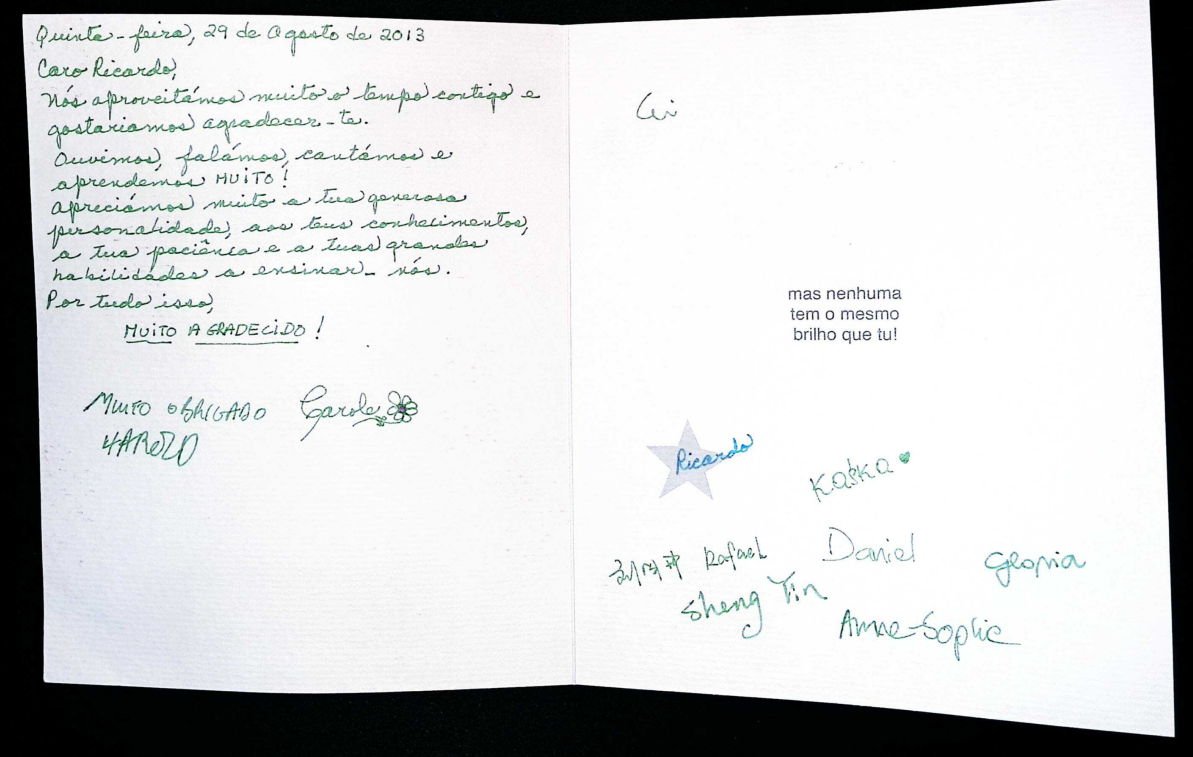 Quinta-feira, 29 de Agosto de 2013
Caro Ricardo,
Nós aproveitámos muito o tempo contigo e
gostariamos agradecer-te.
Ouvimos, falámos, cantámos e
aprendemos MUITO!
Apreciámos muito a tua generosa
personalidade, aos teus conhecimentos,
a tua paciência e a tuas grandes
habilidades a ensinar-nós.
Por tudo isso,
MUITO AGRADECIDO!
MUITO OBRIGADO
HAROLD
Carole
mas nenhuma
tem o mesmo
brilho que tu!
Ricardo
Kaśka
Rafael
Daniel
Gloria
Sheng Yin
Anne-Sophie